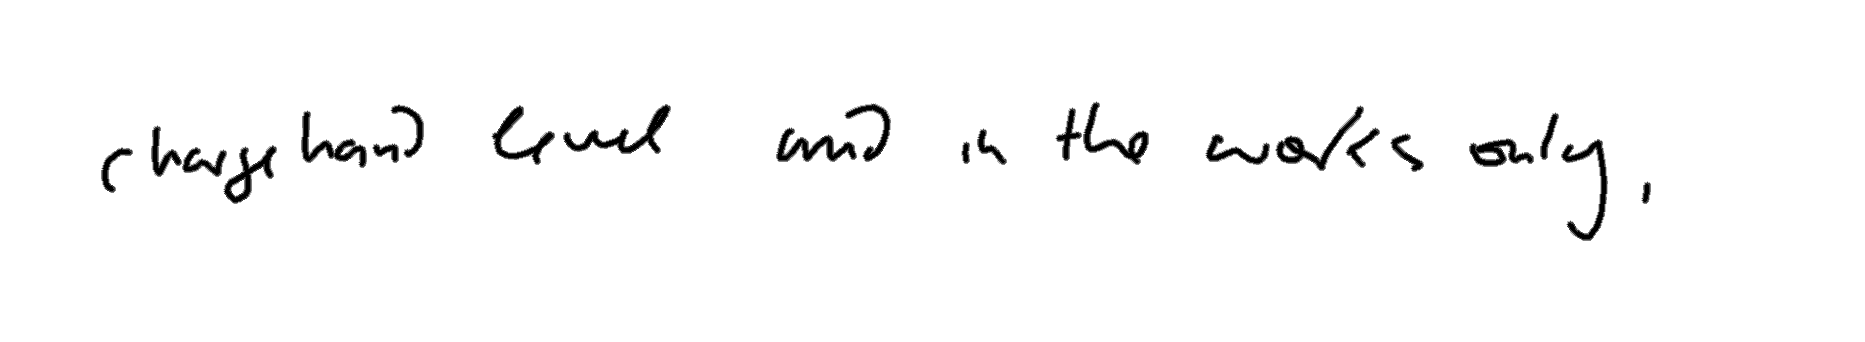 chargehand level and in the works only,